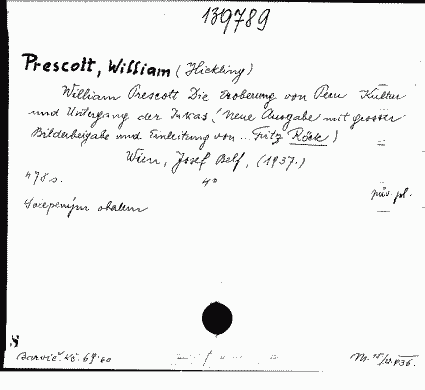 139789
Prescott, William (Hickling)
William Prescott Die Eroberung von Peru Kultur
und Untergang der Inkas. (Neue Ausgabe mit grosser
Bilderbeigabe und Einleitung von... Fritz Röck)
Wien, Josef Belf, (1937.)
478 s. 4°
pův. pl.
S
Barvič. Kč. 69.60